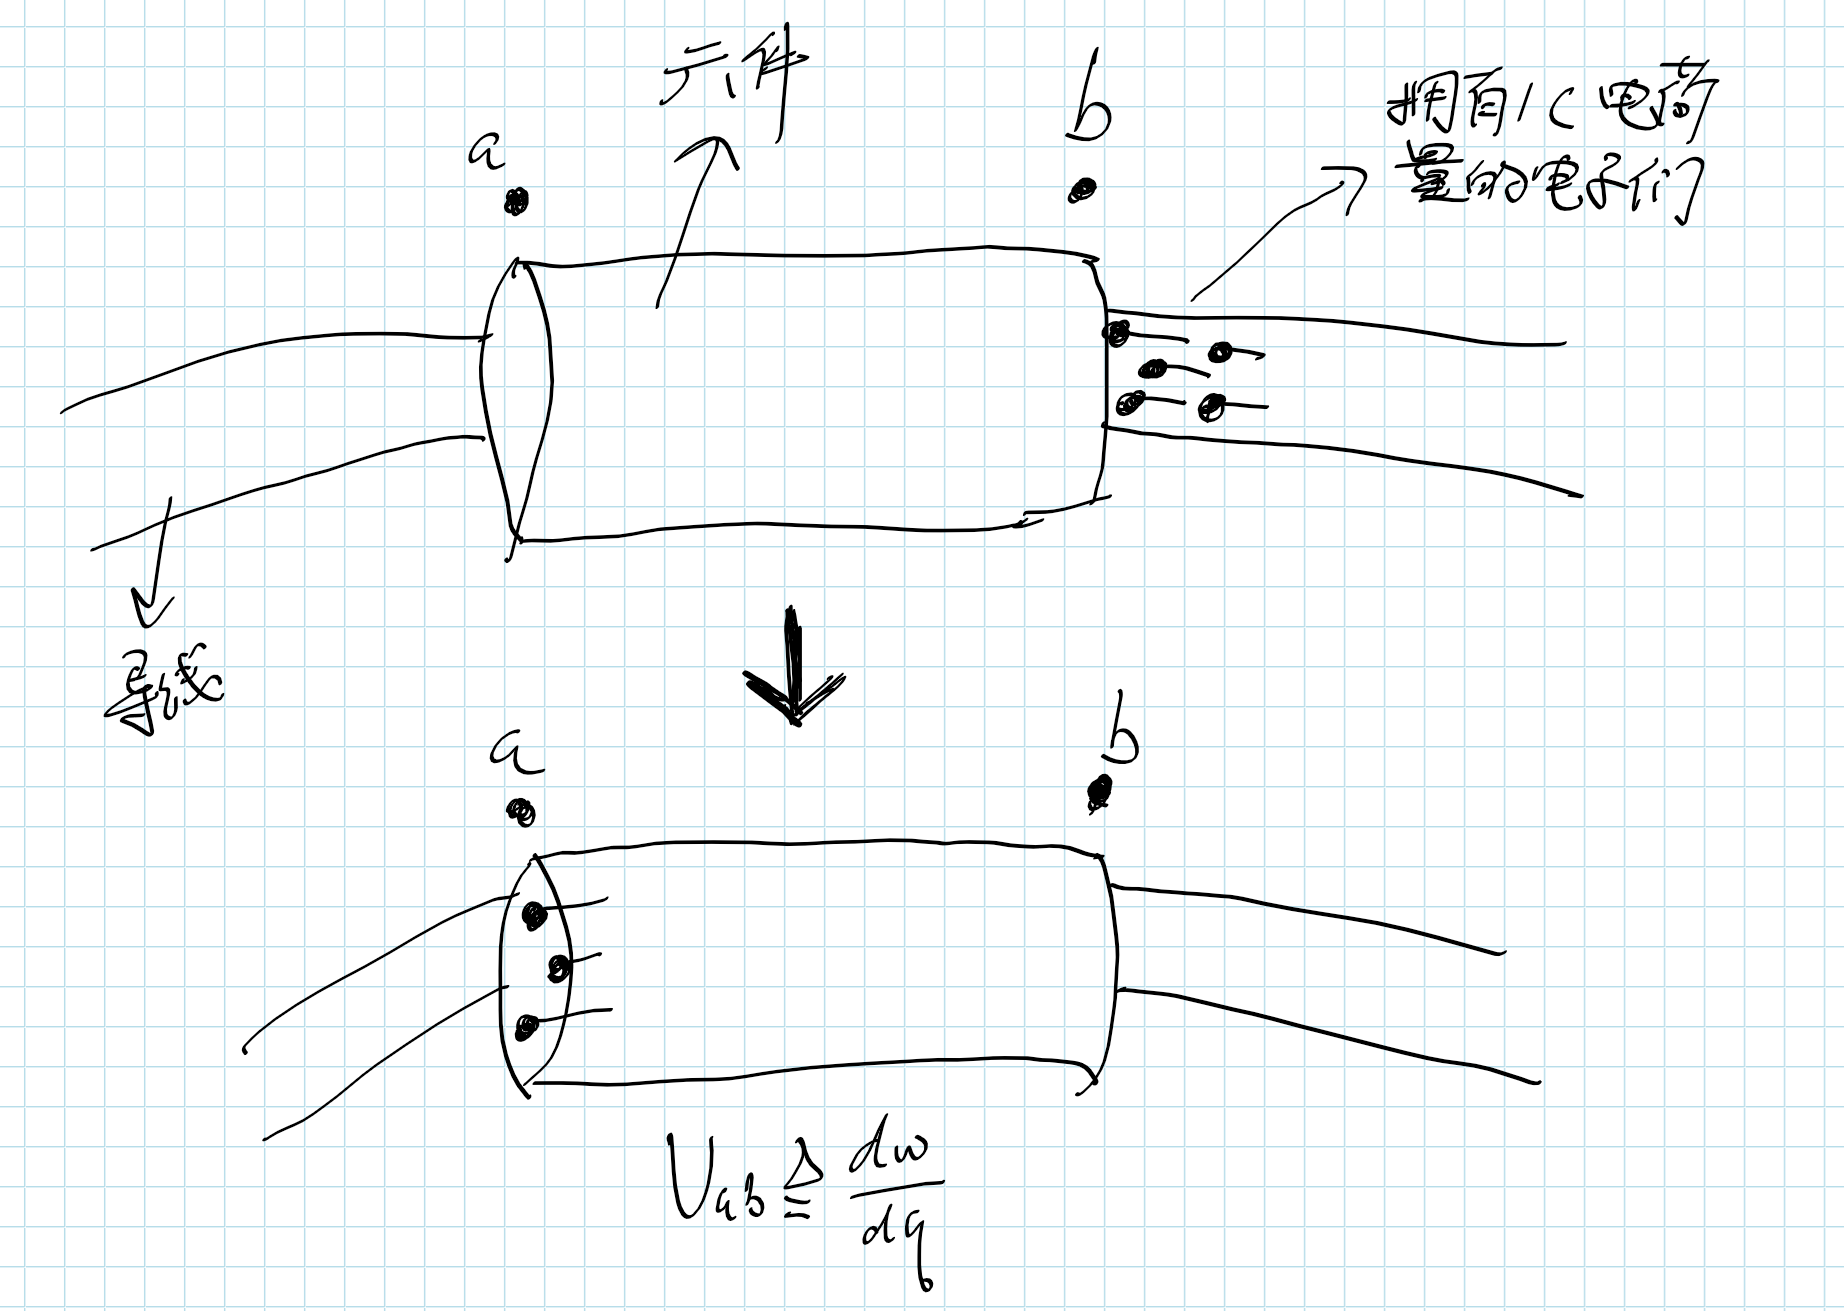 元件
a
b
拥有1C电荷
量的电子们
导线
a
b
Uab ≜ dw/dq